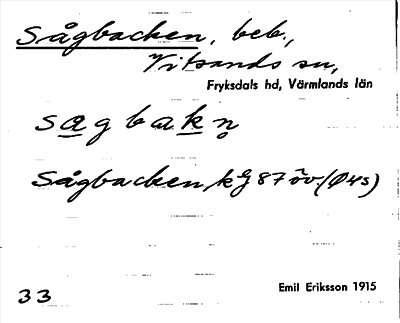 Sågbacken, beb.,
Vitsands sn,
Fryksdals hd, Värmlands län
sagbakn̥
Sågbacken, kg 87 öv. (Ö4s)
33
Emil Eriksson 1915